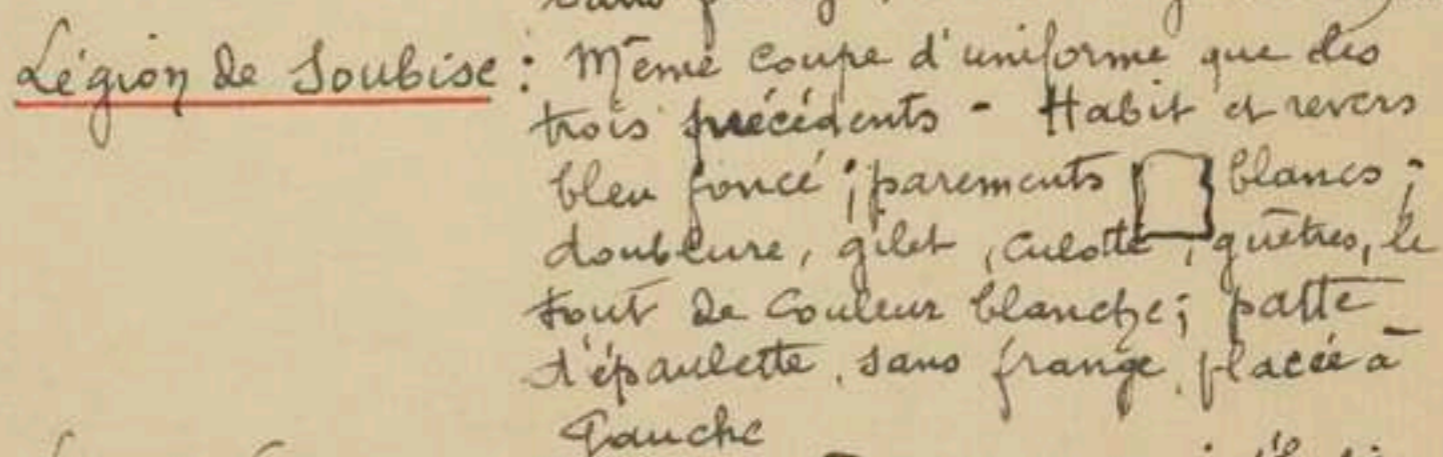 Légion de Soubise : Même coupe d'uniforme que les
trois précédents - Habit et revers
bleu foncé ; parements blancs ;
doublure, gilet, culotte, guêtres, le
tout de couleur blanche ; patte
d'épaulette, sans frange, placée à
Gauche